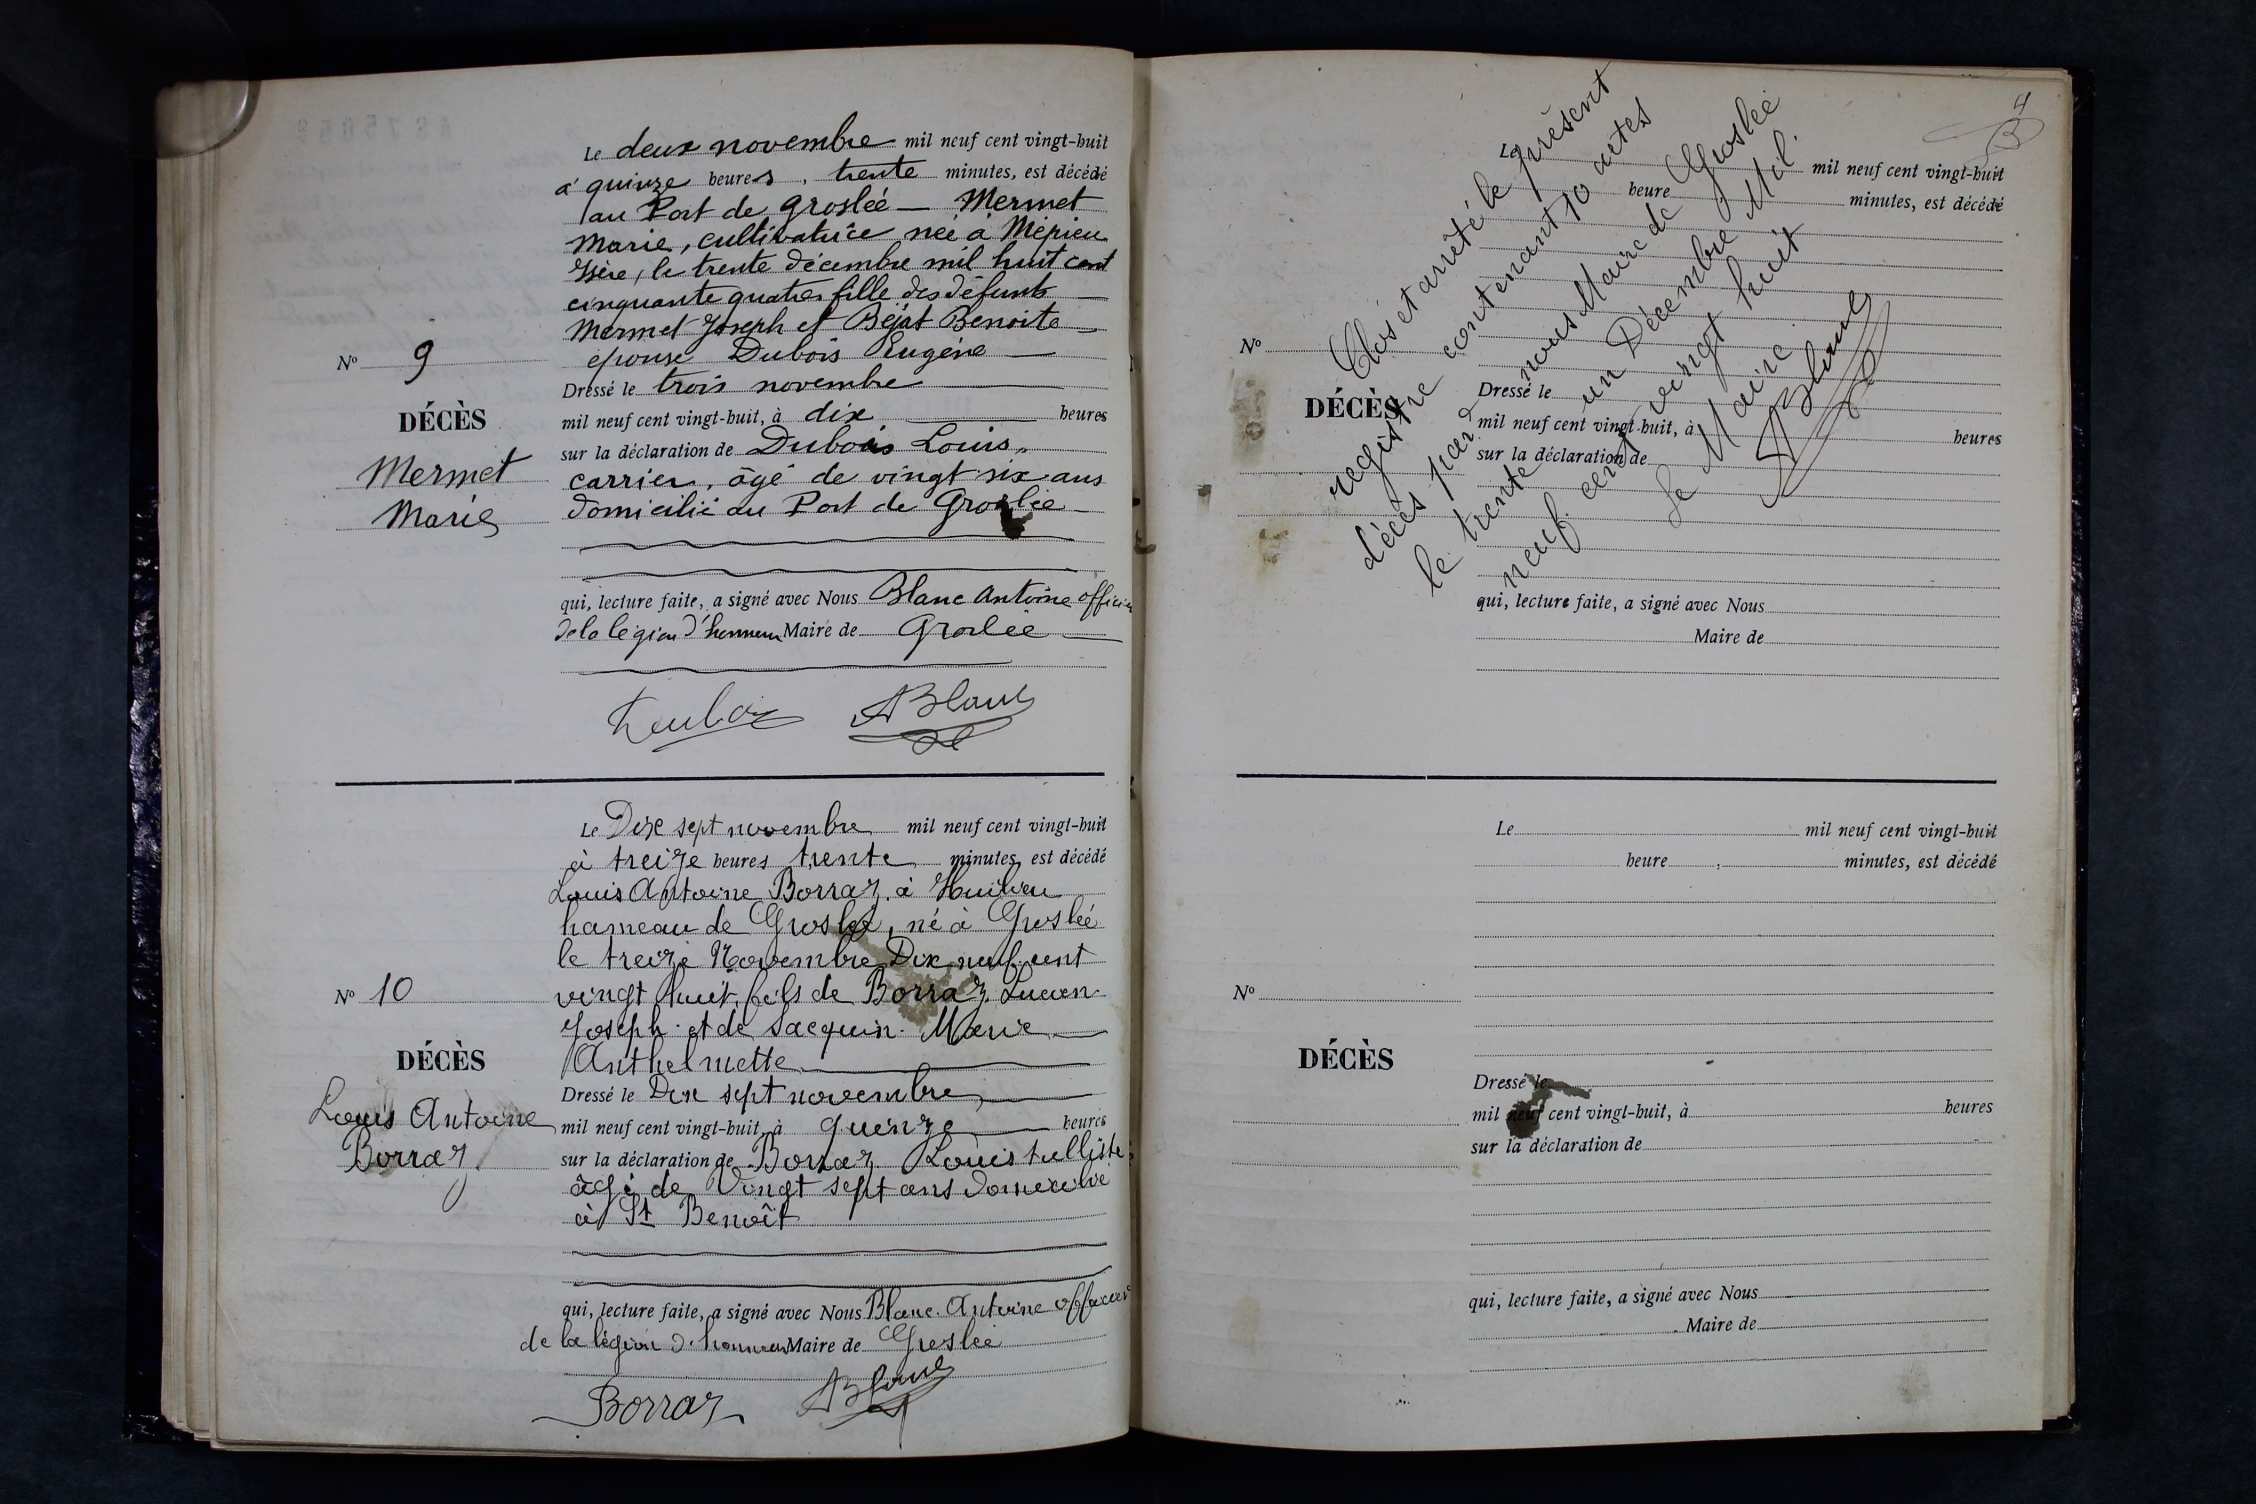 Le deux novembre mil neuf cent vingt-huit
à quinze heures, trente minutes, est décédé
au Port de Groslée — Mermet
Marie, cultivatrice née à Mépieu
Isère, le trente décembre mil huit cent
cinquante quatre, fille des défunts
Mermet Joseph et Béjat Benoite
épouse Dubois Eugène
Nº 9
DÉCÈS
Mermet
Marie
Dressé le trois novembre
mil neuf cent vingt-huit, à dix heures
sur la déclaration de Dubois Louis,
carrier, âgé de vingt six ans
domicilié au Port de Groslée
qui, lecture faite, a signé avec Nous Blanc Antoine officier
de la légion d'honneur Maire de Groslée
Dubois ABlanc
Le Dix sept novembre mil neuf cent vingt-huit
à treize heures trente minutes, est décédé
Louis Antoine Borraz, à
hameau de Groslée, né à Groslée
le treize Novembre Dix neuf cent
vingt huit, fils de Borraz Lucien
Joseph et de Jacquin Marie
Anthelmette
Nº 10
DÉCÈS
Louis Antoine
Borraz
Dressé le Dix sept novembre
mil neuf cent vingt-huit, à quinze heures
sur la déclaration de Borraz Louis tulliste
âgé de Vingt sept ans domicilié
à St Benoît
qui, lecture faite, a signé avec Nous Blanc Antoine officier
de la légion d'honneur Maire de Groslée
Borraz ABlanc
4
Le mil neuf cent vingt-huit
heure minutes, est décédé
Nº
DÉCÈS
Dressé le
mil neuf cent vingt-huit, à heures
sur la déclaration de
qui, lecture faite, a signé avec Nous
Maire de
Clos et arrêté le présent
registre contenant 10 actes
décès par nous Maire de Groslée
le trente un Décembre Mil
neuf cent vingt huit
Le Maire
ABlanc
Le mil neuf cent vingt-huit
heure , minutes, est décédé
Nº
DÉCÈS
Dressé le
mil neuf cent vingt-huit, à heures
sur la déclaration de
qui, lecture faite, a signé avec Nous
Maire de